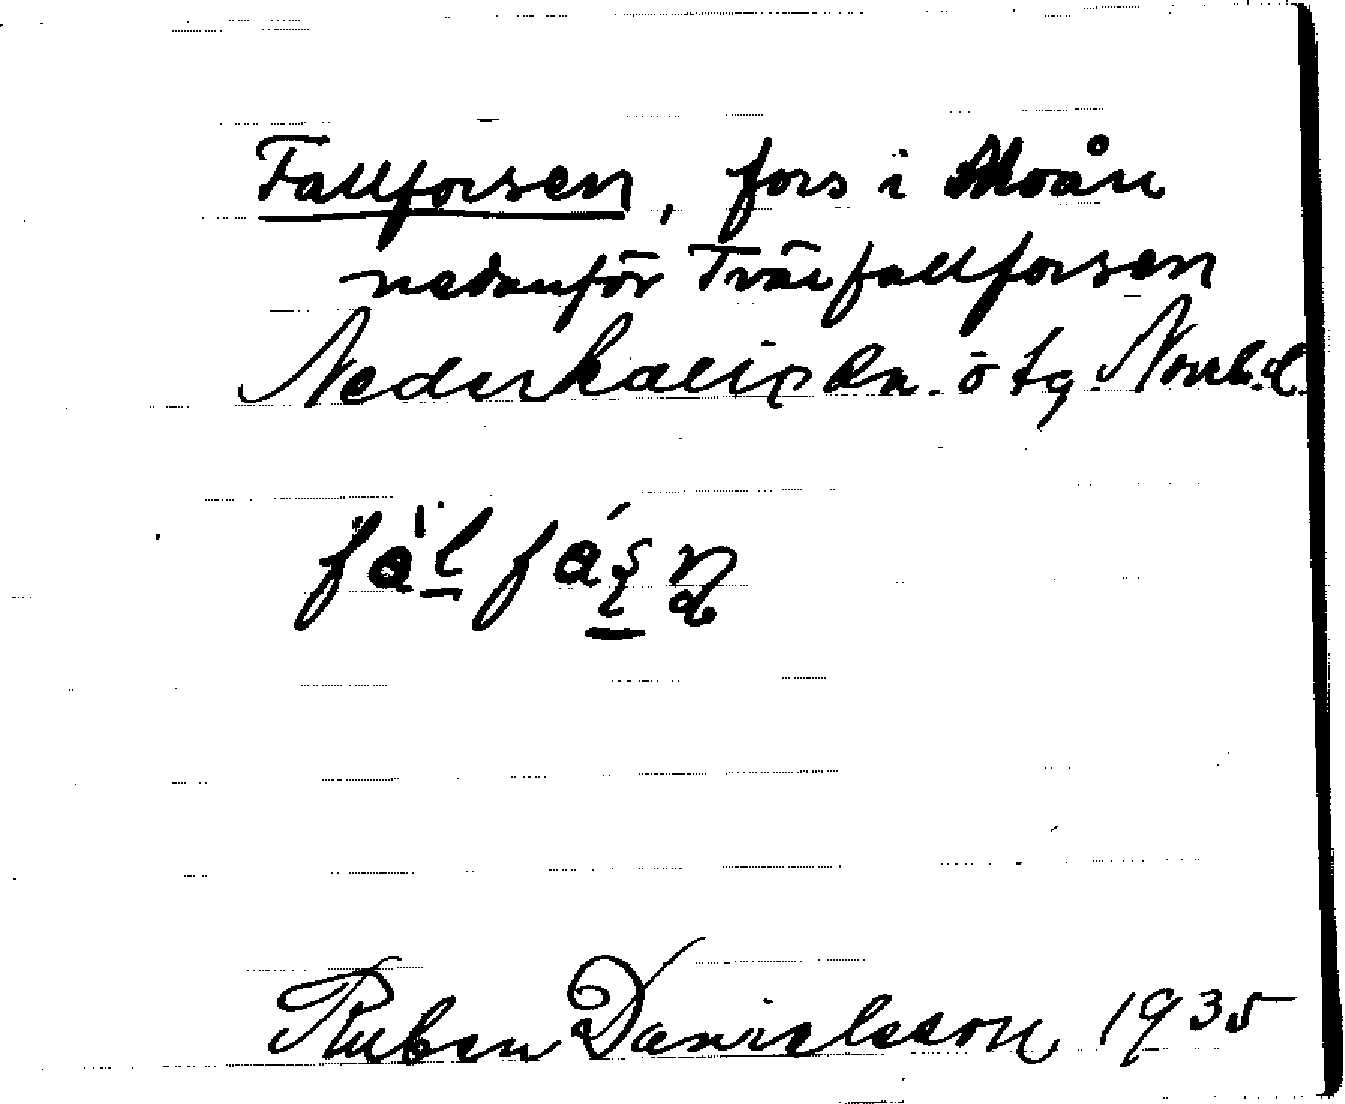 Fallforsen, fors i Moån
nedanför Tväifallforsen
Nederkalix sn. ö tg Norrb.l.
Ruben Danielsson 1935